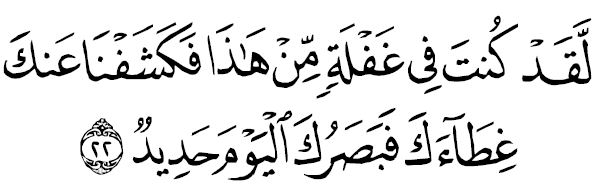 لَّقَدْ كُنتَ فِي غَفْلَةٍ مِّنْ هَٰذَا فَكَشَفْنَا عَنكَ
غِطَآءَكَ فَبَصَرُكَ ٱلْيَوْمَ حَدِيدٌ ٢٢